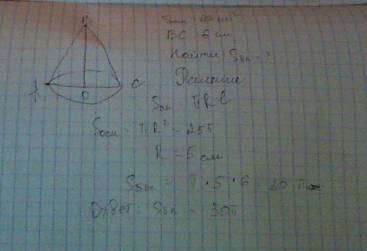 B
Sосн = см²
BC = 6 см
Найти: Sбок - ?
A
C
O
Решение
Sбок = πRl
Sосн = πR² = 25π
R = 5 см
Sбок = π · 5 · 6 = 30 π
Ответ: Sбок = 30π